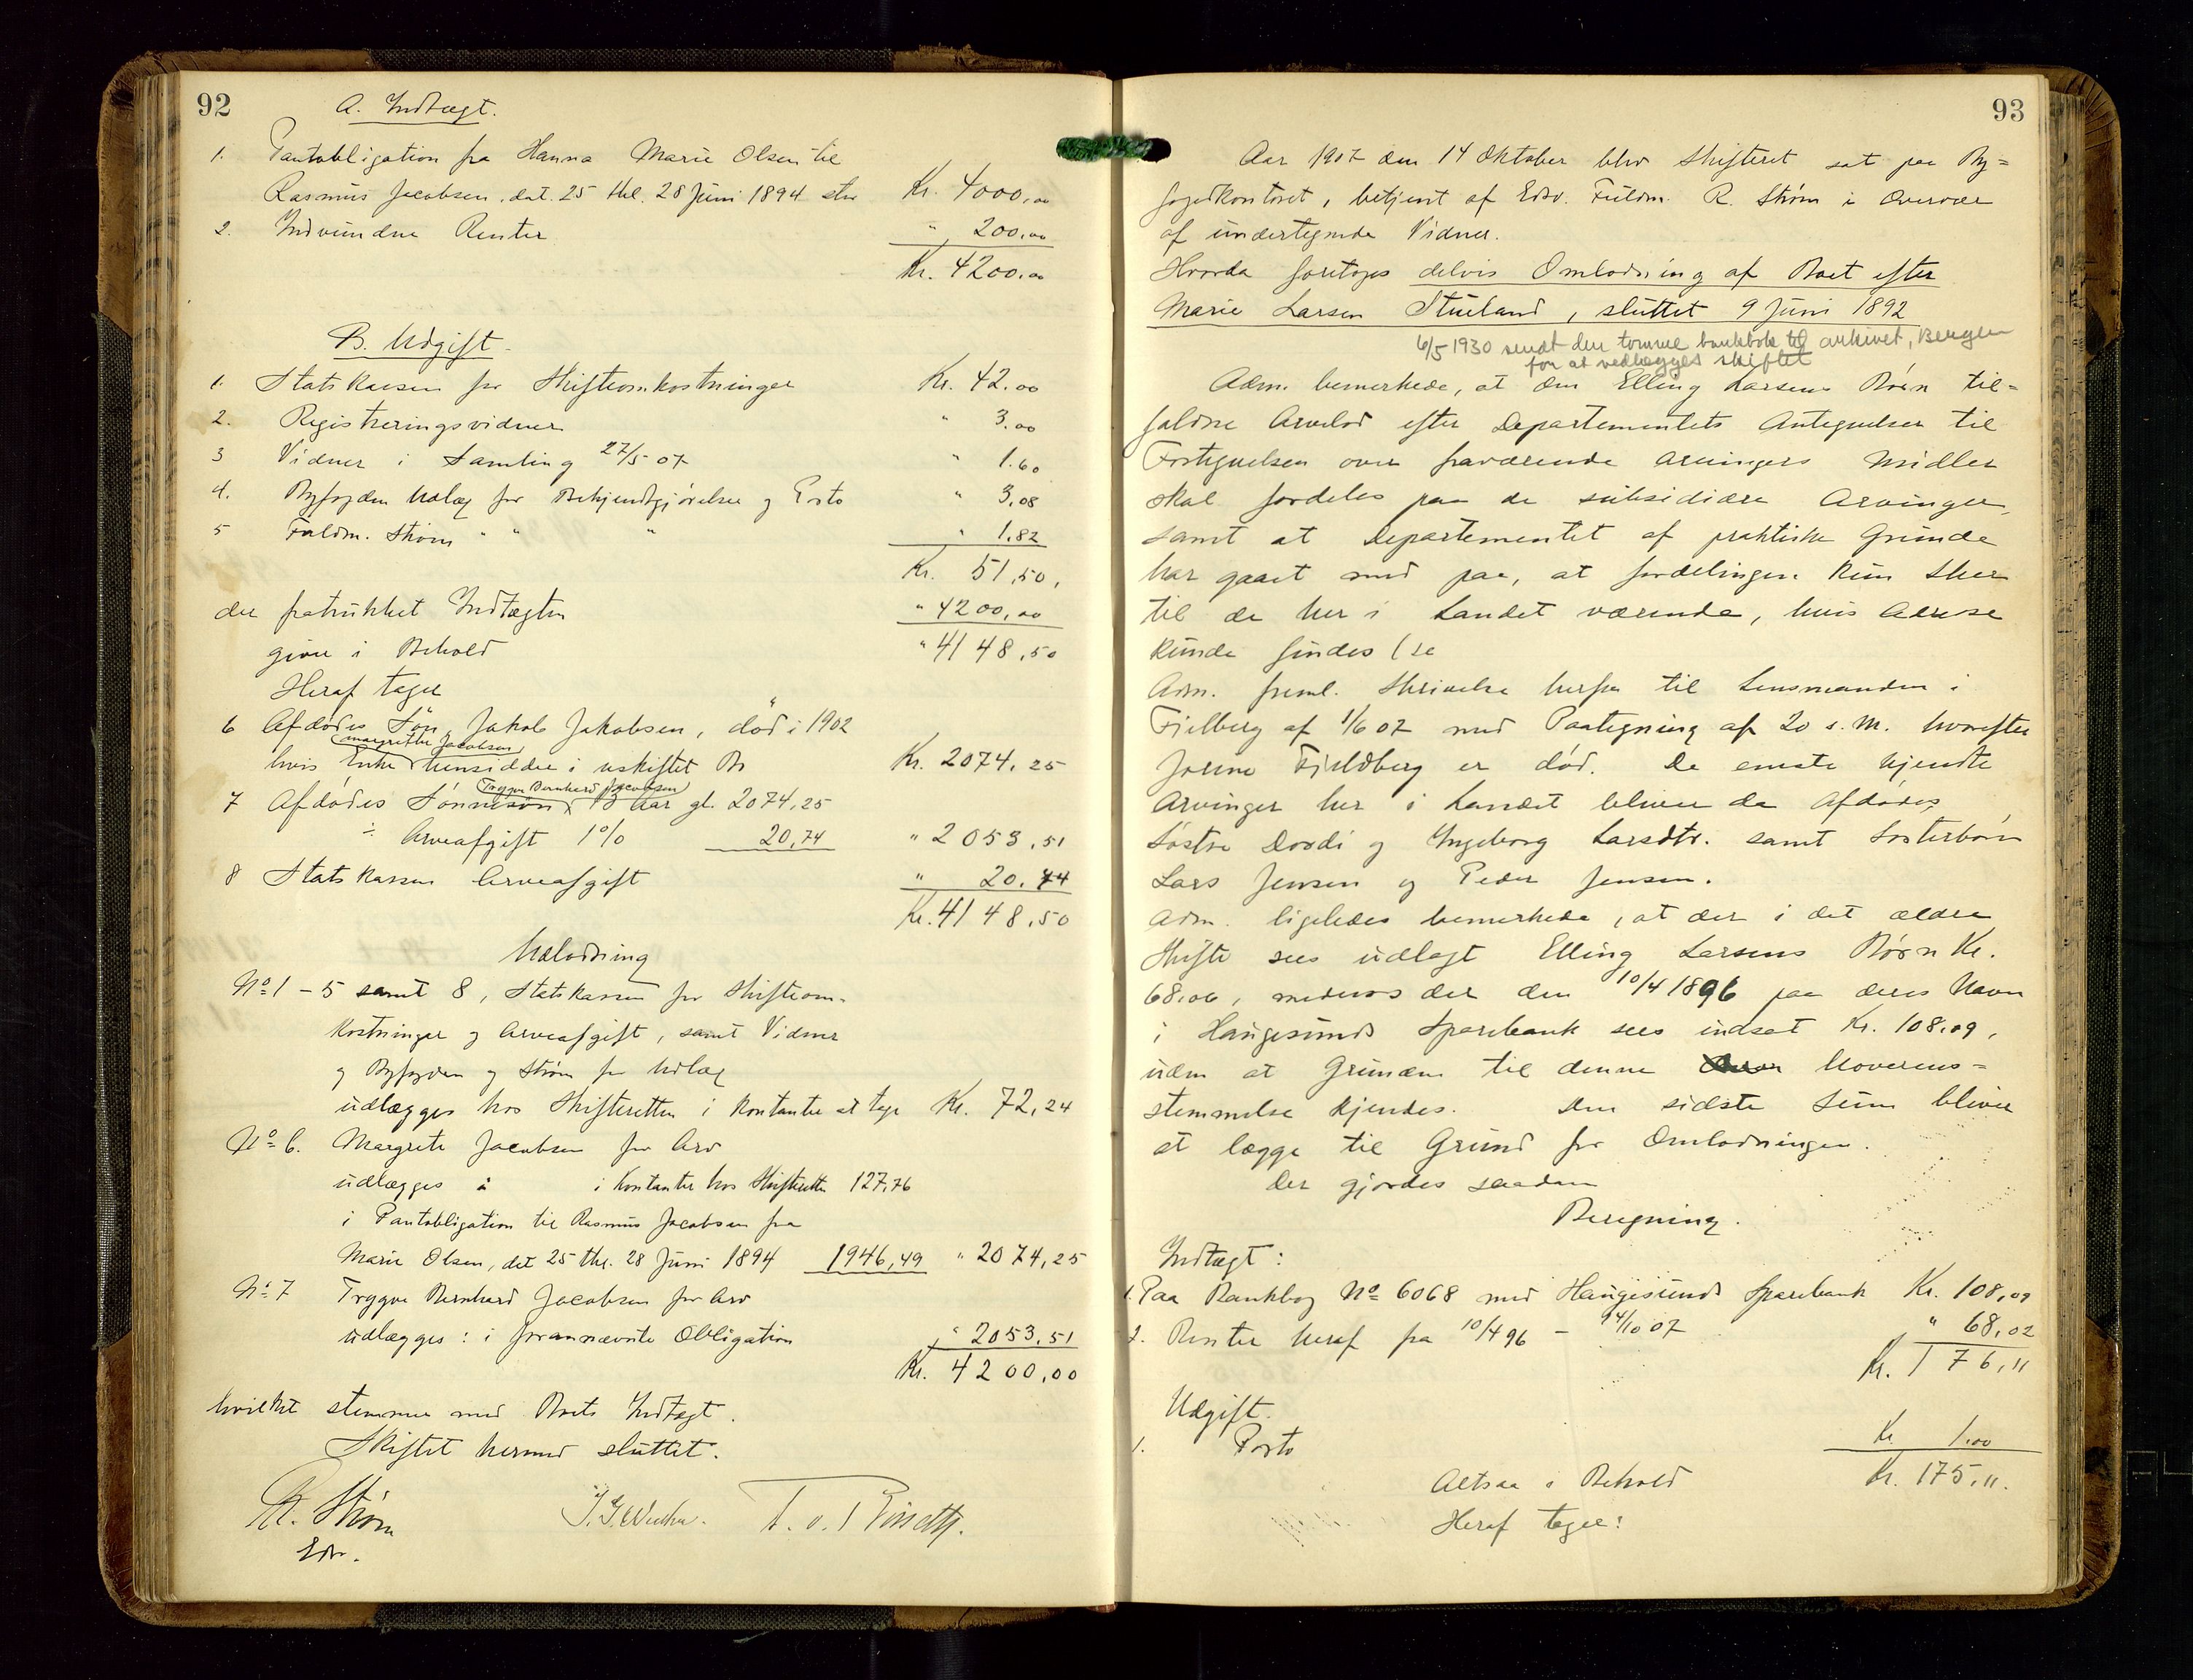 92
A. Indtægt.
1. Pantobligation fra Hanna Marie Olsen til
Rasmus Jacobsen, dat. 25 thl. 28 Juni 1894 stor Kr. 4000,00
2. Indvundne Renter " 200,00
Kr. 4200,00
B. Udgift
1. Statskassen for Skifteomkostninger Kr. 42.00
2. Registreringsvidner " 3.00
3 Vidner i Samling 27/5 07 " 1.60
4. Byfogden Udlæg for Bekjendtgjørelse og Porto " 3,08
5 Fuldm. Strøm " " " " 1,82
Kr. 51,50,
der fratrukket Indtægten " 4200,00
giver i Behold " 4148,50
Heraf tager
6 Afdødes Søn, Jakob Jakobsen, død i 1902
(Margrethe Jacobsen)
hvis Enke hensidder i uskiftet Bo Kr. 2074,25
(Trygve Bernhard Jacobsen)
7 Afdødes Sønnesøn, 13 Aar gl. 2074,25
÷ Arveafgift 1% 20,74 " 2053,51
8 Statskassen Arveafgift " 20.74
Kr. 4148,50
Udlodning
No 1 - 5 samt 8, Statskassen for Skifteom-
kostninger og Arveafgift, samt Vidner
og Byfogden og Strøm for Udlæg
udlægges hos Skifteretten i Kontanter at tage Kr. 72,24
No 6. Margrete Jacobsen for Arv
udlægges i Kontanter hos Skifteretten 127,76
i Pantobligation til Rasmus Jacobsen fra
Marie Olsen, dat 25 thl. 28 Juni 1894 1946,49 " 2074,25
No 7 Trygve Bernhard Jacobsen for Arv
udlægges: i forannævnte Obligation " 2053,51
Kr. 4200,00
hvilket stemmer med Boets Indtægt.
Skiftet hermed sluttet.
R. Strøm
Edv.
93
Aar 1907 den 14 Oktober blev Skifteret sat paa By=
fogedkontoret, betjent af Edsv. Fuldm. R. Strøm i Overvær
af undertegnede Vidner.
Hvorda foretoges delvis Omlodning af Boet efter
Marie Larsen Stueland, sluttet 9 Juni 1892
6/5 1930 sendt den tomme bankbok til arkivet, Bergen
for at vedlægges skiftet
Adm. bemerkede, at den Elling Larsens Børn til=
faldne Arvelod efter Departementets Antegnelser til
Fortegnelsen over fraværende Arvingers Midler
skal fordeles paa de subsidiære Arvinger,
samt at Departementet af praktiske Grunde
har gaaet med paa, at fordelingen kun sker
til de her i Landet værende, hvis Adresse
kunde findes (se
Adm. freml. Skrivelse herfra til Lensmanden i
Fjelberg af 1/6 07 med Paategning af 20 s.M. hvorefter
Fjeldberg er død. De eneste kjendte
Arvinger her i Landet bliver da Afdødes
Søstre Dordi og Ingeborg Larsdtr. samt Søsterbørn
Lars Jensen og Peder Jensen.
Adm. ligeledes bemerkede, at der i det ældre
Skifte sees udlagt Elling Larsens Børn Kr.
68.06, medens der den 10/4 1896 paa deres Navn
i Haugesunds Sparebank sees indsat Kr. 108,09,
uden at Grunden til denne Uoverens=
stemmelse kjendes. Den sidste Sum bliver
at lægge til Grund for Omlodningen.
Der gjordes saadan
Beregning.
Indtægt:
1. Paa Bankbog No 6068 med Haugesunds Sparebank Kr. 108,09
2. Renter heraf fra 10/4 96 - 14/10 07 " 68,02
Kr. 176,11
Udgift.
1. Porto Kr 1.00
Altsaa i Behold Kr. 175,11.
Heraf tager: